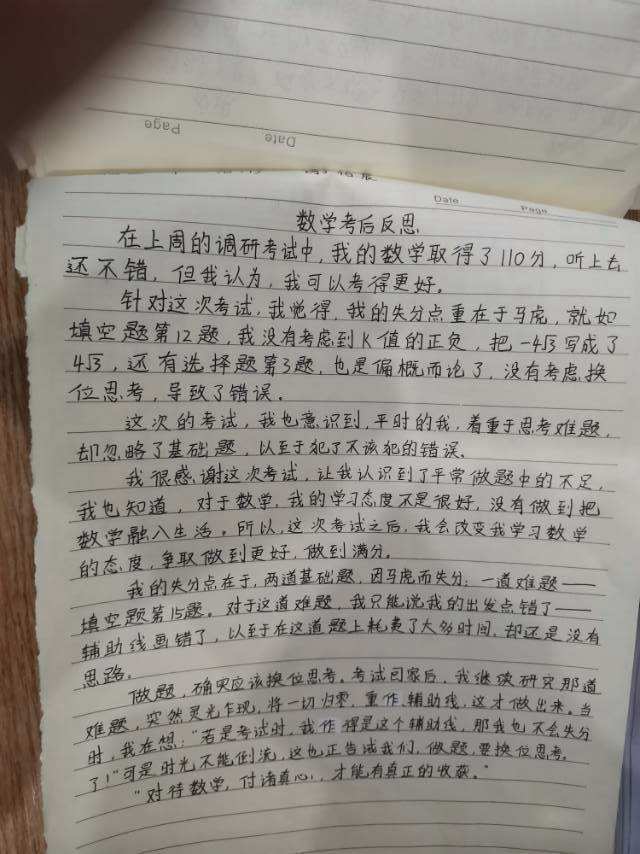 Page
Date
Date
Page
数学考后反思
在上周的调研考试中,我的数学取得了110分,听上去
还不错,但我认为,我可以考得更好。
针对这次考试,我觉得,我的失分点重在于马虎,就如
填空题第12题,我没有考虑到K值的正负,把-4√3写成了
4√3,还有选择题第3题,也是偏概而论了,没有考虑换
位思考,导致了错误。
这次的考试,我也意识到,平时的我,着重于思考难题,
却忽略了基础题,以至于犯了不该犯的错误。
我很感谢这次考试,让我认识到了平常做题中的不足,
我也知道,对于数学,我的学习态度不是很好,没有做到把
数学融入生活。所以,这次考试之后,我会改变我学习数学
的态度,争取做到更好,做到满分。
我的失分点在于,两道基础题,因马虎而失分;一道难题——
填空题第15题。对于这道难题,我只能说我的出发点错了——
辅助线画错了,以至于在这道题上耗费了大多时间,却还是没有
思路。
做题,确实应该换位思考。考试回家后,我继续研究那道
难题,突然灵光乍现,将一切归零,重作辅助线,这才做出来。当
时,我在想:"若是考试时,我作得是这个辅助线,那我也不会失分
了!"可是时光不能倒流,这也正告诫我们,做题,要换位思考。
"对待数学,付诸真心,才能有真正的收获。"